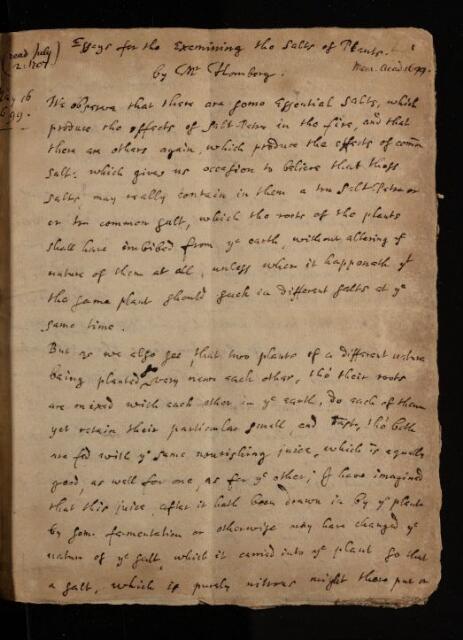 Essays for the Examining the Salts of Plants.
by Mr Homberg. Mem. Acad. 1699.
(read July
2. 1707)
May 16
1699.
We observe that there are some Essential Salts, which
produce the effects of Salt-Petre in the fire, and that
there are others again, which produce the effects of comon
Salt: which gives us occasion to believe that these
Salts may really contain in them a tru Salt-Petre or
or tru common Salt, which the roots of the plants
shall have imbibed from ye earth, without altering ye
nature of them at all, unless when it happeneth yt
the same plant should suck in different Salts at ye
same time.
But as we also see, that two plants of a different nature
being planted very near each other, tho' their roots
are mixed with each other in ye earth, do each of them
yet retain their particular smell, and taste, tho' both
are fed with ye same nourishing juice, which is equally
good, as well for one, as for ye other; I have imagined
that this juice after it hath been drawn in by ye plants
by some fermentation or otherwise may have changed ye
nature of ye Salt, which it carried into ye plant so that
a Salt, which is purely nitrous might there put on